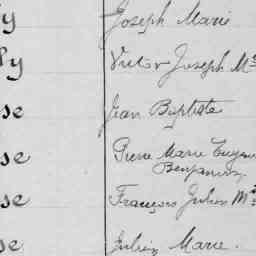 y Joseph Marie
Py Victor Joseph M
se Jean Baptiste
se Pierre Marie Eugène
Benjamin
se François Julien M
se Julien Marie.